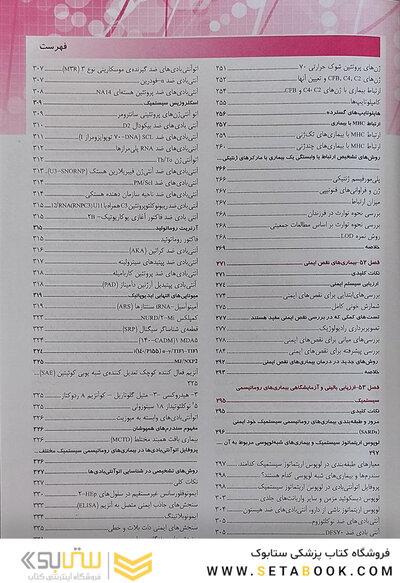 فهرست
ژن‌های پروتئین شوک حرارتی ۷۰ ۲۵۱
ژن‌های CFB, C4, C2 و تعیین آنها ۲۵۲
ارتباط بیماری با ژن‌های C4، C2 و CFB ۲۵۴
کامپلوتایپ‌ها ۲۵۵
هاپلوتایپ‌های گسترده ۲۵۶
ارتباط MHC با بیماری ۲۵۷
ارتباط MHC با بیماری‌های تک‌ژنی ۲۵۹
ارتباط MHC با بیماری‌های چندژنی ۲۶۰
روش‌های تشخیص ارتباط یا وابستگی یک بیماری با مارکرهای ژنتیکی
۲۶۶
پلی‌مورفیسم ژنتیکی ۲۶۶
ژن و فراوانی‌های فنوتیپی ۲۶۷
میزان ارتباط ۲۶۷
بررسی نحوه توارث در فرزندان ۲۶۸
بررسی نحوه توارث بر اساس مطالعات جمعیتی ۲۶۸
روش نمره LOD ۲۶۸
خلاصه ۲۶۹
فصل ۵۲-بیماری‌های نقص ایمنی ۲۷۱
نکات کلیدی ۲۷۱
ارزیابی سیستم ایمنی ۲۷۴
بررسی‌های ابتدایی برای نقص‌های ایمنی ۲۷۴
شمارش خونی کامل ۲۷۵
تست‌های کمکی که در بررسی نقص ایمنی مفید هستند ۲۷۷
تصویربرداری رادیولوژیک ۲۷۷
بررسی‌های میانی برای نقص‌های ایمنی
بررسی پیشرفته برای نقص‌های ایمنی
روش‌های جدید در درمان بیماری‌های نقص ایمنی
خلاصه ۲۹۳
فصل ۵۳-ارزیابی بالینی و آزمایشگاهی بیماری‌های روماتیسمی
سیستمیک ۲۹۵
نکات کلیدی ۲۹۵
مرور و طبقه‌بندی بیماری‌های روماتیسمی سیستمیک خود ایمنی
(SARDs)
لوپوس اریتماتوز سیستمیک و بیماری‌های شبه‌لوپوسی مربوط به آن
۲۹۷
معیارهای طبقه‌بندی در لوپوس اریتماتوز سیستمیک کدامند
سندرم‌ها و بیماری‌های شبه لوپوسی کدام هستند؟
پروفایل اتوآنتی‌بادی در لوپوس اریتماتوز سیستمیک
لوپوس دیسکوئید مزمن و سایر واریانت‌های جلدی
لوپوس اریتماتوز ناشی از دارو، آنتی‌بادی‌های ضد هیستون
آنتی بادی‌های ضد نوکلئوزوم ۳۰۴
آنتی بادی ضد DFS70 ۳۰۵
اتوآنتی‌بادی‌های ضد گیرنده‌ی موسکارینی نوع ۳ (M3R) ۳۰۷
آنتی‌بادی‌های ضد α-فودرین ۳۰۷
آنتی‌بادی‌های ضد پروتئین هسته‌ای NA14 ۳۰۸
اسکلروزیس سیستمیک ۳۰۹
اتو آنتی‌ژن‌های پروتئینی سانترومر ۳۰۹
آنتی‌بادی‌های ضد بیکودال D2
آنتی‌بادی‌های ضد SCL-70 (DNA توپوایزومراز I) ۳۱۰
آنتی‌بادی‌های ضد RNA پلی‌مرازها
اتوآنتی‌ژن Th/To
آنتی‌بادی‌های ضدآنتی‌ژن فیبریلارین هستکی (U3-SNORNP) ۳۱۳
آنتی بادی‌های ضد PM/Scl ۳۱۳
آنتی‌بادی‌های ضد ناحیه سازمان دهنده هستکی
آنتی‌بادی ضد فاکتور آغازی یوکاریوتیک-2B
آرتریت روماتوئید ۳۱۵
فاکتور روماتوئید ۳۱۵
آنتی بادی ضد کراتین (AKA)
آنتی‌بادی‌های ضد پپتیدهای سیترولینه ۳۱۷
آنتی‌بادی‌های ضد پروتئین کاربامیله ۳۱۸
آنتی‌بادی پپتیدیل آرژنین دآمیناز (PAD) ۳۱۸
میوپاتی‌های التهابی ایدیوپاتیک ۳۱۹
آمینواسیل-tRNA سنتتازها (ARS) ۳۱۹
کمپلکس NURD/2-Mi
قطعه‌ی شناساگر سیگنال (SRP)
MDA5 (CADM-140)
TIF1-γ/α (p155/140)
MJ/NXP2
آنزیم فعال کننده کوچک تعدیل کننده‌ی شبه یوبی کوئیتین (SAE)
۳۲۵
۳- هیدروکسی ۳- متیل گلوتاریل- کوآنزیم A ردوکتاز ۳۲۵
۵' نوکلئوتیداز ۱A سیتوزولی
آنتی‌بادی‌های وابسته به میوزیت
مفهوم سندرم‌های همپوشان ۳۲۶
بیماری بافت همبند مختلط (MCTD) ۳۲۶
پروفایل اتوآنتی‌بادی‌ها در بیماری‌های روماتیسمی سیستمیک مختلف
۳۲۷
روش‌های تشخیصی در شناسایی اتوآنتی‌بادی‌ها
نکات کلی
ایمونوفلورسانس غیرمستقیم در سلول‌های HEp-2 ۳۳۰
سنجش‌های جاذب ایمنی متصل به آنزیم (ELISA)
ایمونوبلاتینگ
سنجش‌های ایمنی دات بلات و خطی
فروشگاه کتاب پزشکی ستابوک
WWW.SETABOOK.COM
ستابوک
فروشگاه اینترنتی کتاب